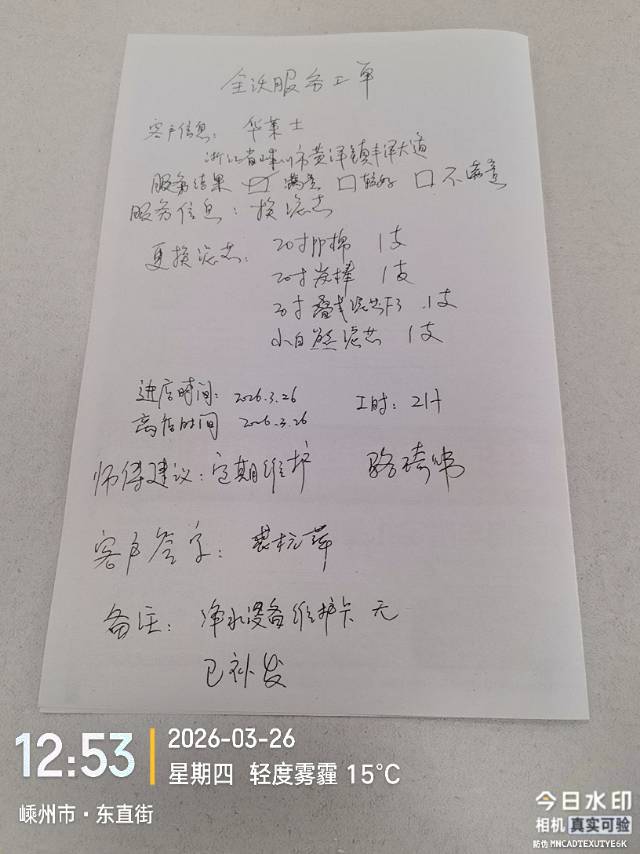 全沃服务工单
客户信息: 华莱士
浙江省嵊州市黄泽镇丰泽大道
服务结果 ☑ 满意 □ 较好 □ 不满意
服务信息: 换滤芯
更换滤芯: 20寸PP棉 1支
20寸炭棒 1支
20寸叠式滤芯F3 1支
小白熊滤芯 1支
进店时间: 2026.3.26 工时: 2H
离店时间 2026.3.26
师傅建议: 定期维护 骆
客户签字: 裘
备注: 净水设备维护卡 无
已补发
12:53
2026-03-26
星期四 轻度雾霾 15℃
嵊州市·东直街
今日水印
相机 真实可验
防伪 MNCADTEXUTYE6K